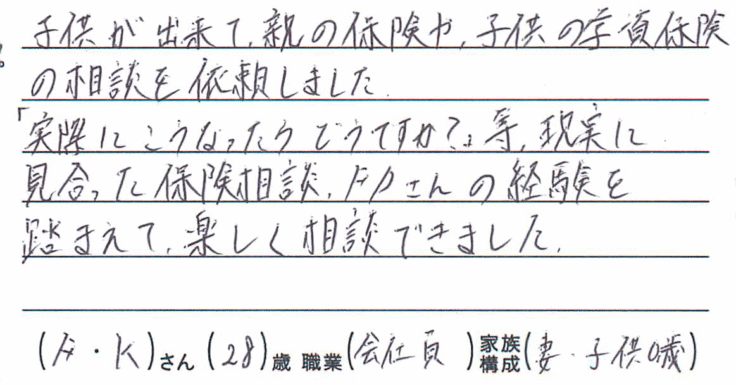 子供が出来て、親の保険や、子供の学資保険
の相談を依頼しました。
「実際にこうなったらどうですか?」等、現実に
見合った保険相談、FPさんの経験を
踏まえて、楽しく相談できました。
( ・K)さん (28)歳 職業(会社員 )家族構成(妻・子供0歳)